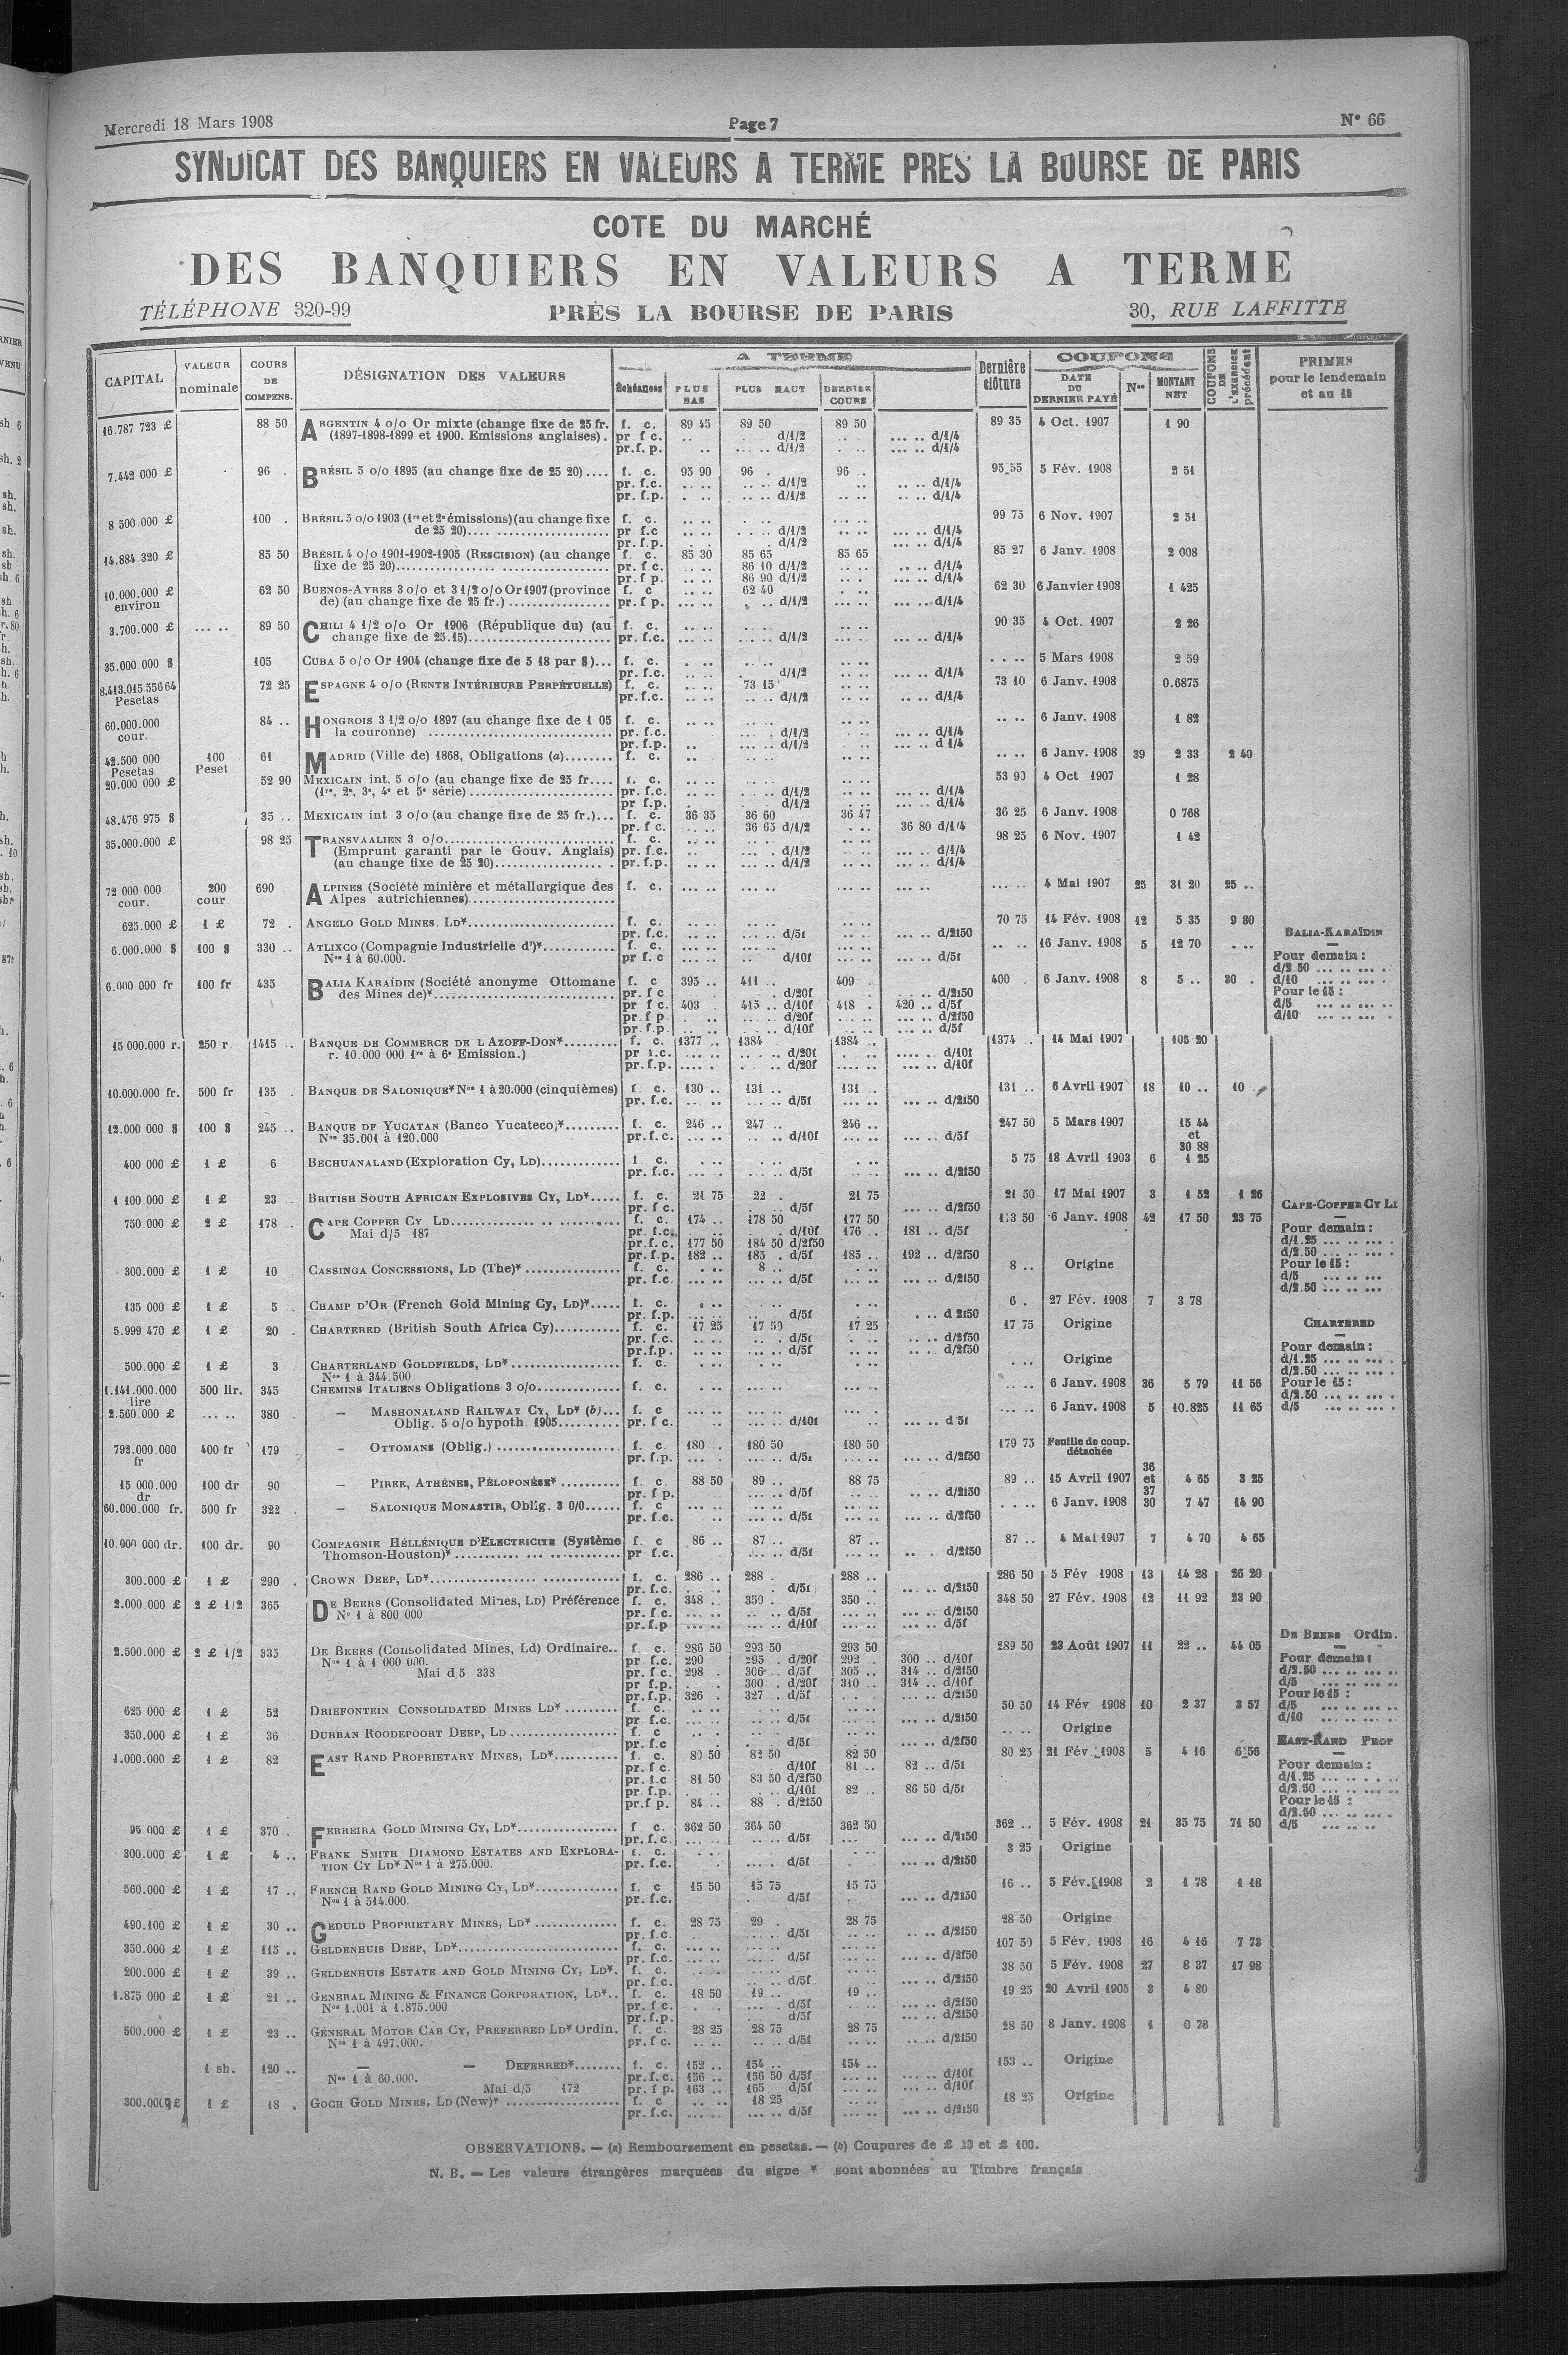 Mercredi 18 Mars 1908 Page 7 N° 66
SYNDICAT DES BANQUIERS EN VALEURS A TERME PRES LA BOURSE DE PARIS
COTE DU MARCHÉ
DES BANQUIERS EN VALEURS A TERME
TÉLÉPHONE 320-99 PRÈS LA BOURSE DE PARIS 30, RUE LAFFITTE
CAPITAL VALEUR nominale COURS DE COMPENS. DÉSIGNATION DES VALEURS A TERME Échéances PLUS BAS PLUS HAUT DERNIER COURS Dernière clôture COUPONS DATE DU DERNIER PAYÉ Nos MONTANT NET COUPONS DE L'EXERCICE précédent PRIMES pour le lendemain et au 15
16.787 723 £ 88 50 ARGENTIN 4 o/o Or mixte (change fixe de 25 fr. f. c. 89 45 89 50 89 50 89 35 4 Oct. 1907 1 90
(1897-1898-1899 et 1900. Emissions anglaises). pr f c. d/1/2 d/1/4
pr.f.p. d/1/2 d/1/4
7.442 000 £ 96 BRÉSIL 5 o/o 1895 (au change fixe de 25 20).... f. c. 95 90 96 96 95 55 5 Fév. 1908 2 51
pr. f.c. d/1/2 d/1/4
pr. f.p. d/1/2 d/1/4
8 500 000 £ 100 BRÉSIL 5 o/o 1903 (1re et 2e émissions) (au change fixe f. c. 99 75 6 Nov. 1907 2 51
de 25 20).... pr f.c d/1/2 d/1/4
pr. f.p. d/1/2 d/1/4
14.884 320 £ 85 50 BRÉSIL 4 o/o 1901-1902-1905 (RESCISION) (au change f. c. 85 30 85 65 85 65 85 27 6 Janv. 1908 2 008
fixe de 25 20) pr. f.c. 86 10 d/1/2 d/1/4
pr. f p. 86 90 d/1/2 d/1/4
10.000.000 £ environ 62 50 BUENOS-AYRES 3 o/o et 3 1/2 o/o Or 1907 (province f. c 62 40 62 30 6 Janvier 1908 1 425
de) (au change fixe de 25 fr.) pr. f p. d/1/2 d/1/4
3.700.000 £ 89 50 CHILI 4 1/2 o/o Or 1906 (République du) (au f. c. 90 35 4 Oct. 1907 2 26
change fixe de 25.15) pr. f.c. d/1/2 d/1/4
35.000 000 $ 105 CUBA 5 o/o Or 1904 (change fixe de 5 18 par $)... f. c. 5 Mars 1908 2 59
pr. f.c. d/1/2 d/1/4
8.413.015 556 64 Pesetas 72 25 ESPAGNE 4 o/o (RENTE INTÉRIEURE PERPÉTUELLE) f. c. 73 15 73 10 6 Janv. 1908 0.6875
pr. f.c. d/1/2 d/1/4
60.000.000 cour. 84 .. HONGROIS 3 1/2 o/o 1897 (au change fixe de 1 05 f. c. 6 Janv. 1908 1 82
la couronne) pr. f.c. d/1/2 d/1/4
pr. f.p. d/1/2 d 1/4
42.500 000 Pesetas 100 Peset 61 MADRID (Ville de) 1868, Obligations (a) f. c. 6 Janv. 1908 39 2 33 2 40
20.000 000 £ 52 90 MEXICAIN int. 5 o/o (au change fixe de 25 fr.... f. c. 53 90 4 Oct 1907 1 28
(1re, 2e, 3e, 4e et 5e série) pr. f.c. d/1/2 d/1/4
pr f.p. d/1/2 d/1/4
48.476 975 $ 35 .. MEXICAIN int 3 o/o (au change fixe de 25 fr.)... f. c. 36 35 36 60 36 47 36 25 6 Janv. 1908 0 768
pr. f c. 36 65 d/1/2 36 80 d/1/4
35.000.000 £ 98 25 TRANSVAALIEN 3 o/o f. c. 98 25 6 Nov. 1907 1 42
(Emprunt garanti par le Gouv. Anglais) pr. f.c. d/1/2 d/1/4
(au change fixe de 25 20) pr. f.p. d/1/2 d/1/4
72 000 000 cour. 200 cour 690 ALPINES (Société minière et métallurgique des f. c. 4 Mai 1907 25 31 20 25 ..
Alpes autrichiennes)
625.000 £ 1 £ 72 . ANGELO GOLD MINES, LD* f. c. 70 75 14 Fév. 1908 12 5 35 9 80
pr. f.c. d/5f d/2f50 BALIA-KARAÏDIN
6.000.000 $ 100 $ 330 .. ATLIXCO (Compagnie Industrielle d')* f. c. 16 Janv. 1908 5 12 70
Nos 1 à 60.000. pr f.c d/10f d/5f Pour demain :
d/2.50
6.000 000 fr 100 fr 435 BALIA KARAÏDIN (Société anonyme Ottomane f. c 395 .. 411 .. 409 400 6 Janv. 1908 8 5 .. 30 d/10
des Mines de)* pr. f c d/20f d/2f50 Pour le 15 :
pr f c. 403 415 .. d/10f 418 420 .. d/5f d/5
pr f p d/20f d/2f50 d/10
pr. f.p. d/10f d/5f
15 000.000 r. 250 r 1415 .. BANQUE DE COMMERCE DE L AZOFF-DON* f. c. 1377 .. 1384 1384 .. 1374 14 Mai 1907 105 20
r. 10.000 000 1re à 6e Emission.) pr f.c. d/20f d/10f
pr.f.p. d/20f d/10f
10.000.000 fr. 500 fr 135 BANQUE DE SALONIQUE* Nos 1 à 20.000 (cinquièmes) f. c. 130 .. 131 .. 131 .. 131 .. 6 Avril 1907 18 10 .. 10
pr. f.c. d/5f d/2f50
12.000 000 $ 100 $ 245 .. BANQUE DE YUCATAN (Banco Yucateco)* f. c. 246 .. 247 .. 246 .. 247 50 5 Mars 1907 15 44
Nos 35.001 à 120.000 pr. f.c. d/10f d/5f et
30 88
400 000 £ 1 £ 6 BECHUANALAND (Exploration Cy, LD) f. c. 5 75 18 Avril 1903 6 1 25
pr. f.c. d/5f d/2f50
1 100.000 £ 1 £ 23 BRITISH SOUTH AFRICAN EXPLOSIVES CY, LD* f. c. 21 75 22 . 21 75 21 50 17 Mai 1907 3 1 52 1 26
pr. f c. d/5f d/2f50 CAPE-COPPER CY L
750.000 £ 2 £ 178 .. CAPE COPPER CY LD f. c. 174 .. 178 50 177 50 6 Janv. 1908 42 17 50 23 75
Mai d/5 187 pr. f.c. d/10f 176 .. 181 .. d/5f Pour demain :
pr.f.c. 177 50 184 50 d/2f50 d/1.25
pr. f.p. 182 .. 185 . d/5f 185 .. 192 .. d/2f50 d/2.50
300.000 £ 1 £ 10 CASSINGA CONCESSIONS, LD (The)* f. c. 8 .. 8 .. Origine Pour le 15 :
pr. f.c. d/5f d/2f50 d/5
d/2.50
135 000 £ 1 £ 5 CHAMP D'OR (French Gold Mining Cy, LD)* f. c. 6 . 27 Fév. 1908 7 3 78
pr. f.p. d/5f d 2f50
5.999 470 £ 1 £ 20 CHARTERED (British South Africa Cy) f. c. 17 25 17 50 17 25 17 75 Origine CHARTERED
pr. f.c. d/5f d/2f50
pr.f.p. d/5f d/2f50 Pour demain :
500.000 £ 1 £ 3 CHARTERLAND GOLDFIELDS, LD* f. c. Origine d/1.25
Nos 1 à 344.500 d/2.50
1.141.000.000 lire 500 lir. 345 CHEMINS ITALIENS Obligations 3 o/o f. c. 6 Janv. 1908 36 5 79 11 56 Pour le 15 :
d/2.50
2.560.000 £ 380 — MASHONALAND RAILWAY CY, LD* (b)... f. c 6 Janv. 1908 5 10.825 11 65 d/5
Oblig. 5 o/o hypoth 1905 pr. f c. d/10f d 5f
792.000.000 fr 400 fr 179 — OTTOMANS (Oblig.) f. c 180 . 180 50 180 50 179 75 Feuille de coup. détachée
pr. f.p. d/5f d/2f50
15 000.000 dr 100 dr 90 — PIRÉE, ATHÈNES, PÉLOPONÈSE* f. c. 88 50 89 .. 88 75 89 .. 15 Avril 1907 36 et 37 4 65 3 25
pr. f p. d/5f d/2f50
60.000.000 fr. 500 fr 322 — SALONIQUE MONASTIR, Oblig. 3 0/0 f. c 6 Janv. 1908 30 7 47 14 90
pr. f.c. d/5f d/2f50
10.000 000 dr. 100 dr. 90 COMPAGNIE HÉLLÉNIQUE D'ELECTRICITE (Système f. c 86 .. 87 .. 87 .. 87 .. 4 Mai 1907 7 4 70 4 65
Thomson-Houston)* pr f.c. d/5f d/2f50
300.000 £ 1 £ 290 CROWN DEEP, LD* f. c. 286 .. 288 . 288 .. 286 50 5 Fév 1908 13 14 28 26 20
pr. f.c. d/5f d/2f50
2.000.000 £ 2 £ 1/2 365 DE BEERS (Consolidated Mines, LD) Préférence f. c. 348 .. 350 . 350 .. 348 50 27 Fév. 1908 12 11 92 23 90
No 1 à 800 000 pr. f.c. d/5f d/2f50
pr. f.p d/10f d/5f
DE BEERS Ordin.
2.500.000 £ 2 £ 1/2 335 DE BEERS (Consolidated Mines, Ld) Ordinaire.. f. c. 286 50 293 50 293 50 289 50 23 Août 1907 11 22 .. 44 05
Nos 1 à 1 000 000. pr. f.c. 290 295 . d/20f 292 . 300 .. d/10f Pour demain :
Mai d 5 338 pr. f c. 298 . 306 .. d/5f 305 .. 314 .. d/2f50 d/2.50
pr f.p. 300 . d/20f 310 .. 314 .. d/10f d/5
pr. f.p. 326 . 327 .. d/5f d/2f50 Pour le 15 :
625 000 £ 1 £ 52 DRIEFONTEIN CONSOLIDATED MINES LD* f. c. 50 50 14 Fév 1908 10 2 37 3 57 d/5
pr f.c. d/5f d/2f50 d/10
350.000 £ 1 £ 36 DURBAN ROODEPOORT DEEP, LD f. c Origine
pr. f.c d/5f d/2f50 EAST-RAND PROP
1.000.000 £ 1 £ 82 EAST RAND PROPRIETARY MINES, LD* f. c. 80 50 82 50 82 50 80 25 21 Fév. 1908 5 4 16 6 56
pr. f c. d/10f 81 .. 82 .. d/5f Pour demain :
pr. f.c 81 50 83 50 d/2f50 d/1.25
pr. f.p. d/10f 82 .. 86 50 d/5f d/2.50
pr.f p. 84 .. 88 . d/2f50 Pour le 15 :
d/2.50
95 000 £ 1 £ 370 . FERREIRA GOLD MINING CY, LD* f c. 362 50 364 50 362 50 362 .. 5 Fév. 1908 21 35 75 71 50 d/5
pr. f.c. d/5f d/2f50
300.000 £ 1 £ 4 .. FRANK SMITH DIAMOND ESTATES AND EXPLORA- f. c. 3 25 Origine
TION CY LD* Nos 1 à 275.000. pr. f.c. d/5f d/2f50
560.000 £ 1 £ 17 .. FRENCH RAND GOLD MINING CY, LD* f. c 15 50 15 75 15 75 16 .. 5 Fév. 1908 2 1 78 1 18
Nos 1 à 514.000. pr. f.c. d/5f d/2f50
490.100 £ 1 £ 30 .. GEDULD PROPRIETARY MINES, LD* f. c. 28 75 29 . 28 75 28 50 Origine
pr. f.c d/5f d/2f50
350.000 £ 1 £ 115 .. GELDENHUIS DEEP, LD* f. c. 107 50 5 Fév. 1908 16 4 16 7 73
pr. f.c. d/5f d/2f50
200.000 £ 1 £ 39 .. GELDENHUIS ESTATE AND GOLD MINING CY, LD*. f. c. 38 50 5 Fév. 1908 27 8 37 17 98
pr. f.c. d/5f d/2f50
1.875 000 £ 1 £ 21 .. GENERAL MINING & FINANCE CORPORATION, LD*.. f. c. 18 50 19 .. 19 .. 19 25 20 Avril 1905 3 4 80
Nos 1.001 à 1.875.000 pr. f c. d/5f d/2f50
pr. f.p. d/5f d/2f50
500.000 £ 1 £ 23 .. GÉNÉRAL MOTOR CAB CY, PREFERRED LD* Ordin. f. c. 28 25 28 75 28 75 28 50 8 Janv. 1908 1 0 78
Nos 1 à 497.000. pr. f c. d/5f d/2f50
1 sh. 120 .. — — DEFERRED* f. c. 152 .. 154 .. 154 .. 153 .. Origine
Nos 1 à 60.000. pr. f.c. 156 .. 156 50 d/5f d/10f
Mai d/5 172 pr. f p. 163 .. 165 d/5f d/10f
300.000 £ 1 £ 18 . GOCH GOLD MINES, LD (New)* f. c 18 25 18 25 Origine
pr. f.c. d/5f d/2f50
OBSERVATIONS. — (a) Remboursement en pesetas. — (b) Coupures de £ 20 et £ 100.
N. B. — Les valeurs étrangères marquées du signe * sont abonnées au Timbre français